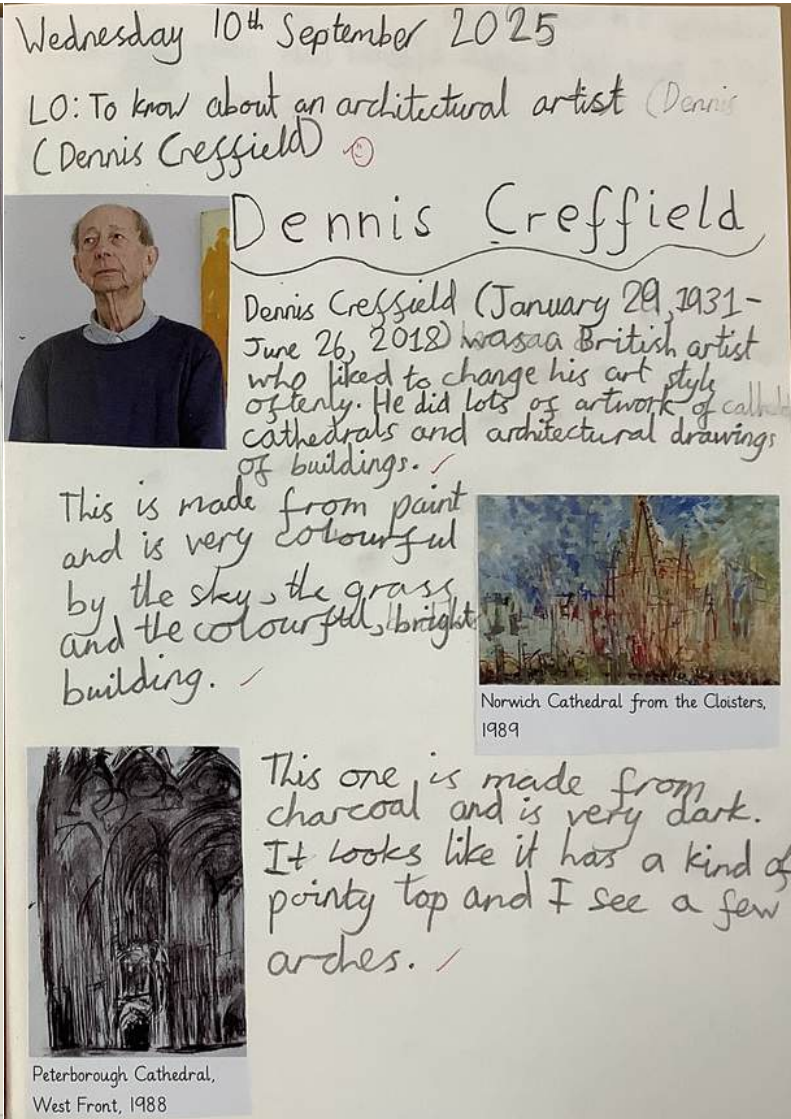 Wednesday 10th September 2025
LO: To know about an architectural artist (Dennis
(Dennis Creffield)
Dennis Creffield
Dennis Creffield (January 29, 1931-
June 26, 2018) was a British artist
who liked to change his art style
oftenly. He did lots of artwork of
cathedrals and architectural drawings
of buildings.
This is made from paint
and is very colourful
by the sky, the grass
and the colourful, bright
building.
Norwich Cathedral from the Cloisters,
1989
This one is made from
charcoal and is very dark.
It looks like it has a kind of
pointy top and I see a few
arches.
Peterborough Cathedral,
West Front, 1988